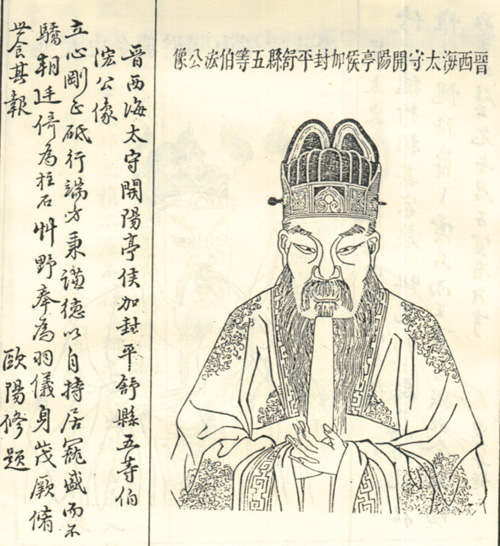 晉西海太守開陽亭侯加封平舒縣五等伯浤公像
晉西海太守開陽亭侯加封平舒縣五等伯
浤公像
立心剛正砥行端方秉謙德以自持居寵盛而不
驕朝廷倚為柱石艸野奉為羽儀身茂厥脩
世食其報 歐陽修題